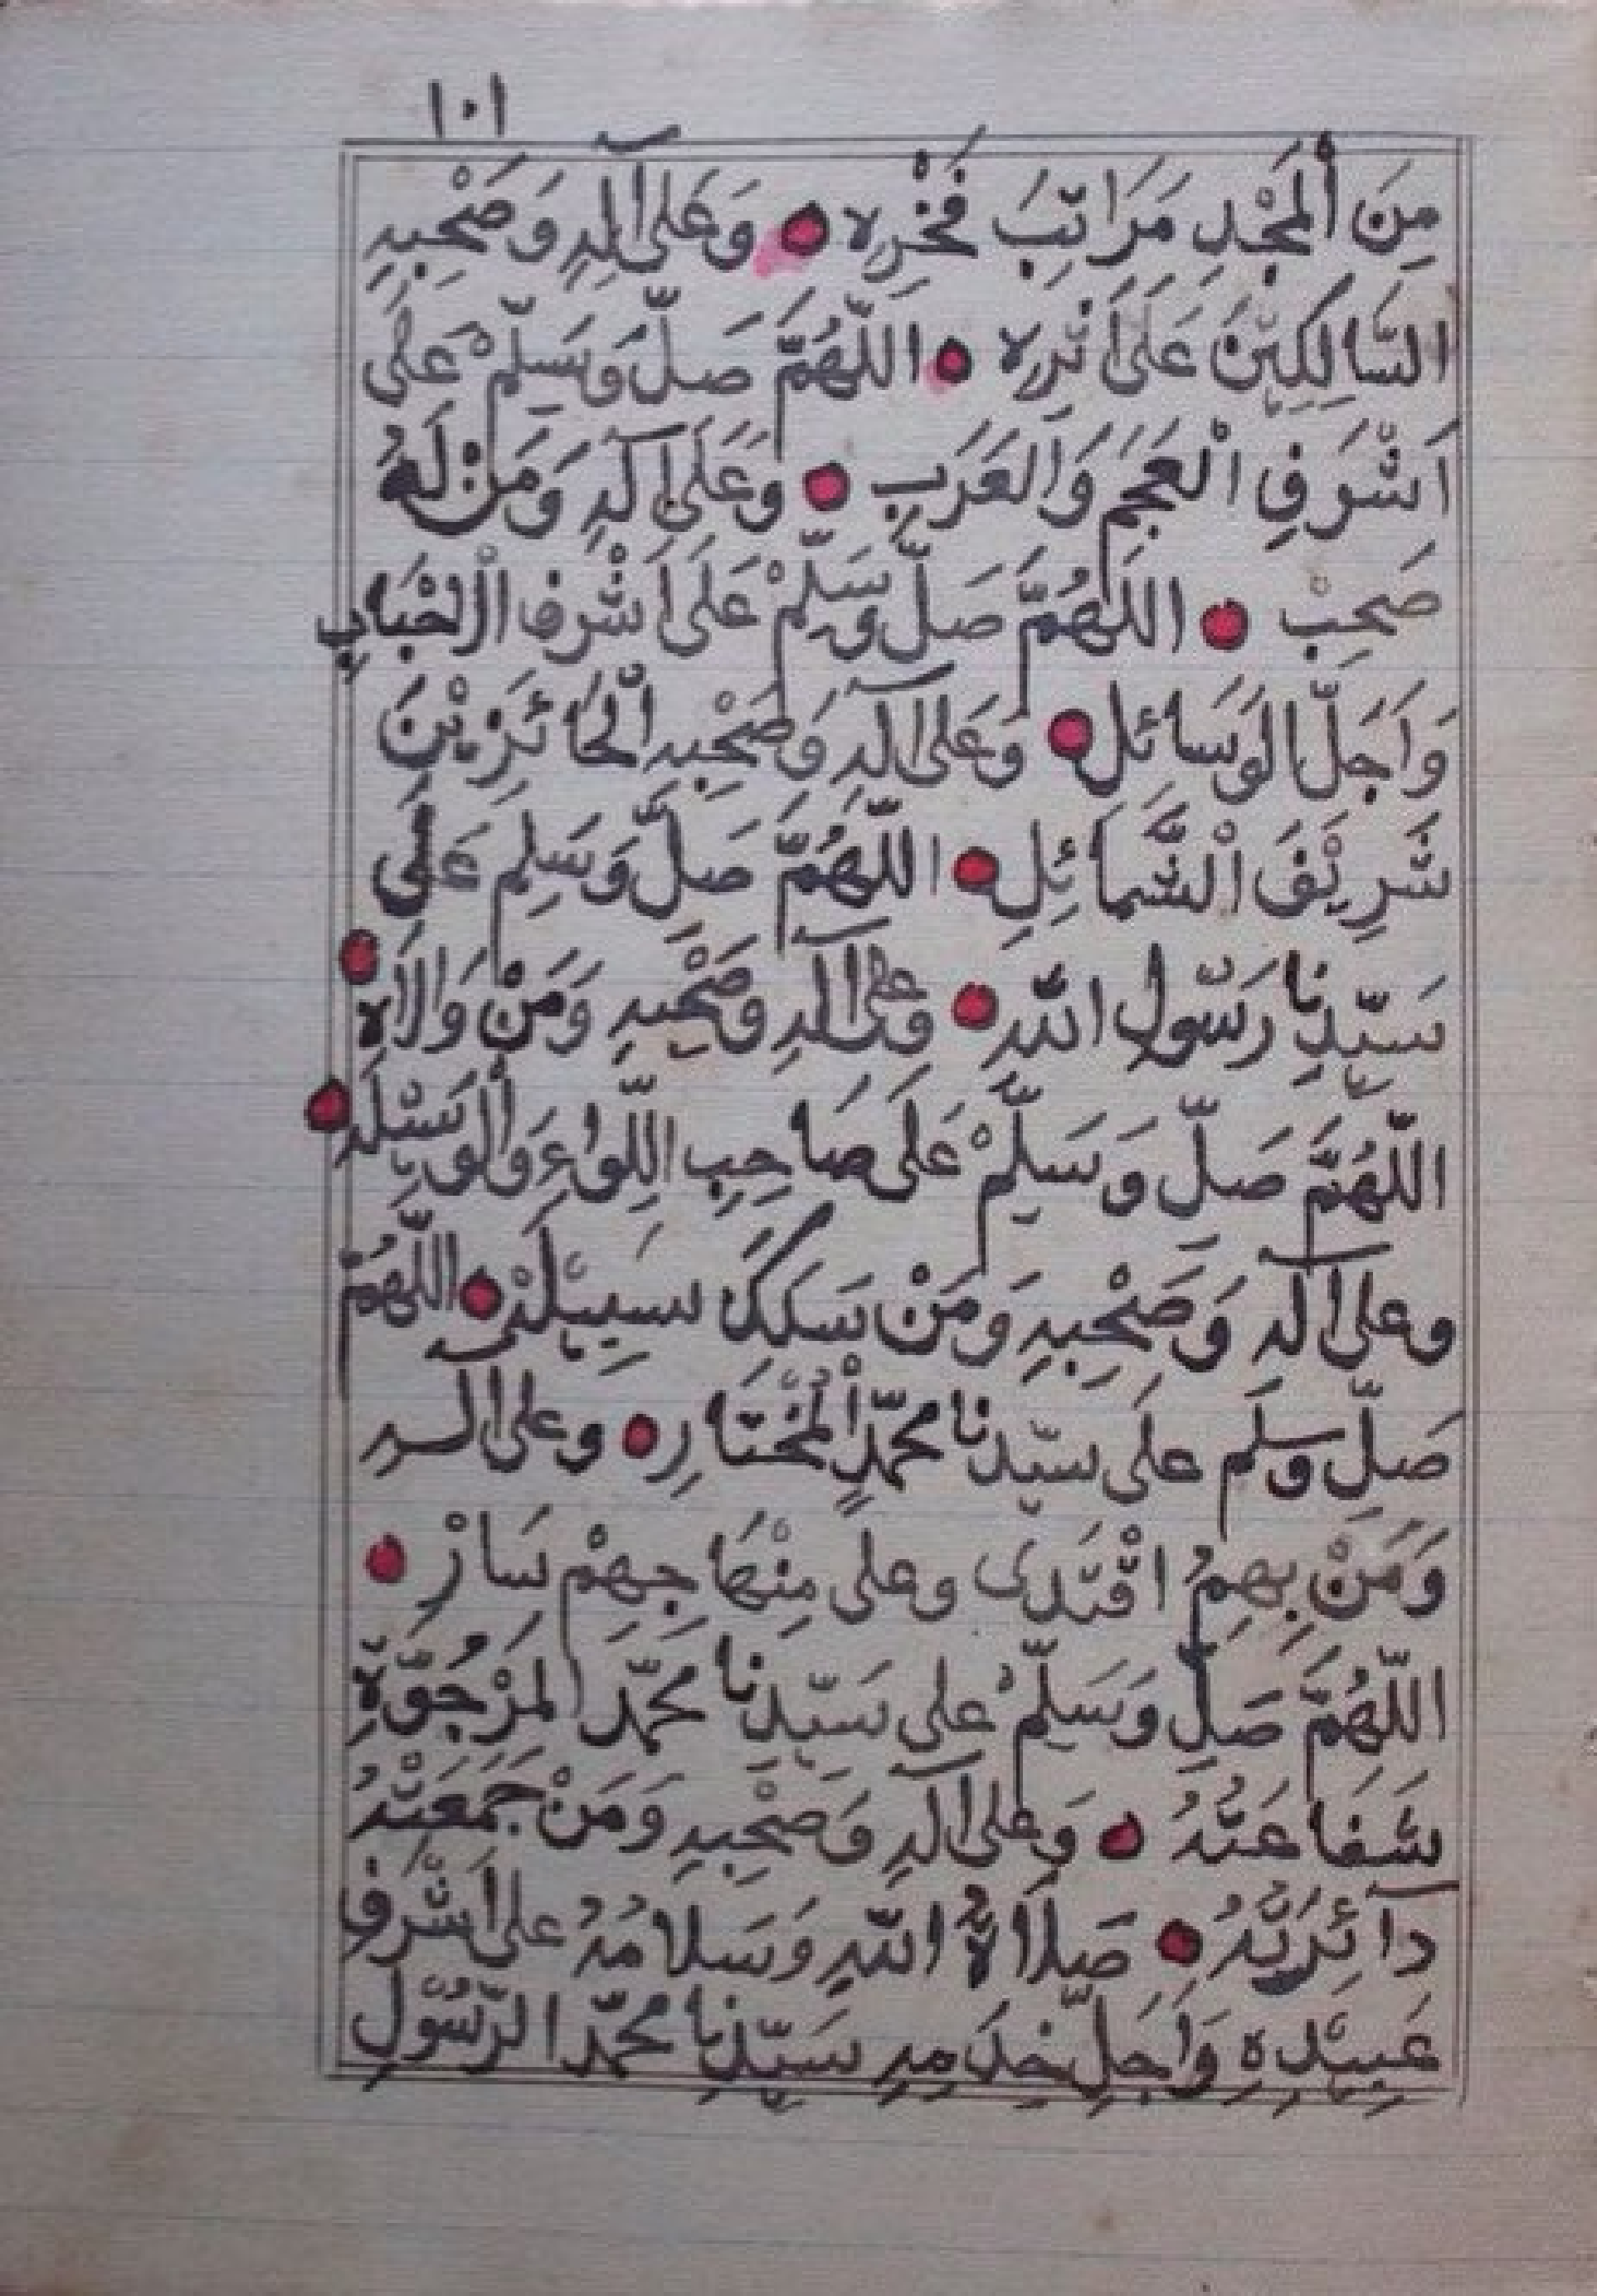 ١٠١
مِنَ ٱلمَجْدِ مَرَاتِبَ فَخْرِه ۝ وَعَلَى آلِهِ وَصَحْبِهِ
السَّالِكِيْنَ عَلَى اَثَرِه ۝ اللّٰهُمَّ صَلِّ وَسَلِّمْ عَلَى
اَشْرَفِ الْعَجَمِ وَالعَرَبِ ۝ وَعَلَى آلِهِ وَمَنْ لَهُ
صَحِبْ ۝ اللّٰهُمَّ صَلِّ وَسَلِّمْ عَلَى اَشْرَفِ الْاَحْبَابِ
وَاَجَلِّ الوَسَائل ۝ وَعَلَى آلِهِ وَصَحْبِهِ الْحَائزِيْنَ
شَرِيْفَ الْشَّمَائِلِ ۝ اللّٰهُمَّ صَلِّ وَسَلِّم عَلَى
سَيِّدِنَا رَسُول اللّٰهِ ۝ وعَلَى آلِهِ وصَحْبِهِ وَمَنْ وَالَاه ۝
اللّٰهُمَّ صَلِّ وَسَلِّمْ عَلَى صَاحِبِ اللِّوَاءِ وَٱلوَسِيْلَه ۝
وعلى آلِهِ وَصَحْبِهِ وَمَنْ سَلَكَ سَبِيْلَهْ ۝ اللّٰهُمّ
صَلِّ وسلم علَى سيّدنا محمّدٍ الْمُخْتَارِ ۝ وعلى آلـه
وَمَنْ بِهِمُ اقْتَدى وعلى مِنْهَاجِهِمْ سَارْ ۝
اللّٰهُمَّ صَلِّ وَسَلِّمْ على سَيِّدِنَا محمّد المَرْجُوَّةِ
شَفَاعَتُهُ ۝ وَعلى آلِهِ وَصَحْبِهِ وَمَنْ جَمَعَتْهُ
دآئِرَتُهُ ۝ صَلَاةُ اللّٰهِ وَسَلامُهُ على اَشْرَفِ
عَبِيْدِهِ وَاَجَلِّ خَدَمِهِ سَيِّدِنَا محمّد الرّسُوْلِ